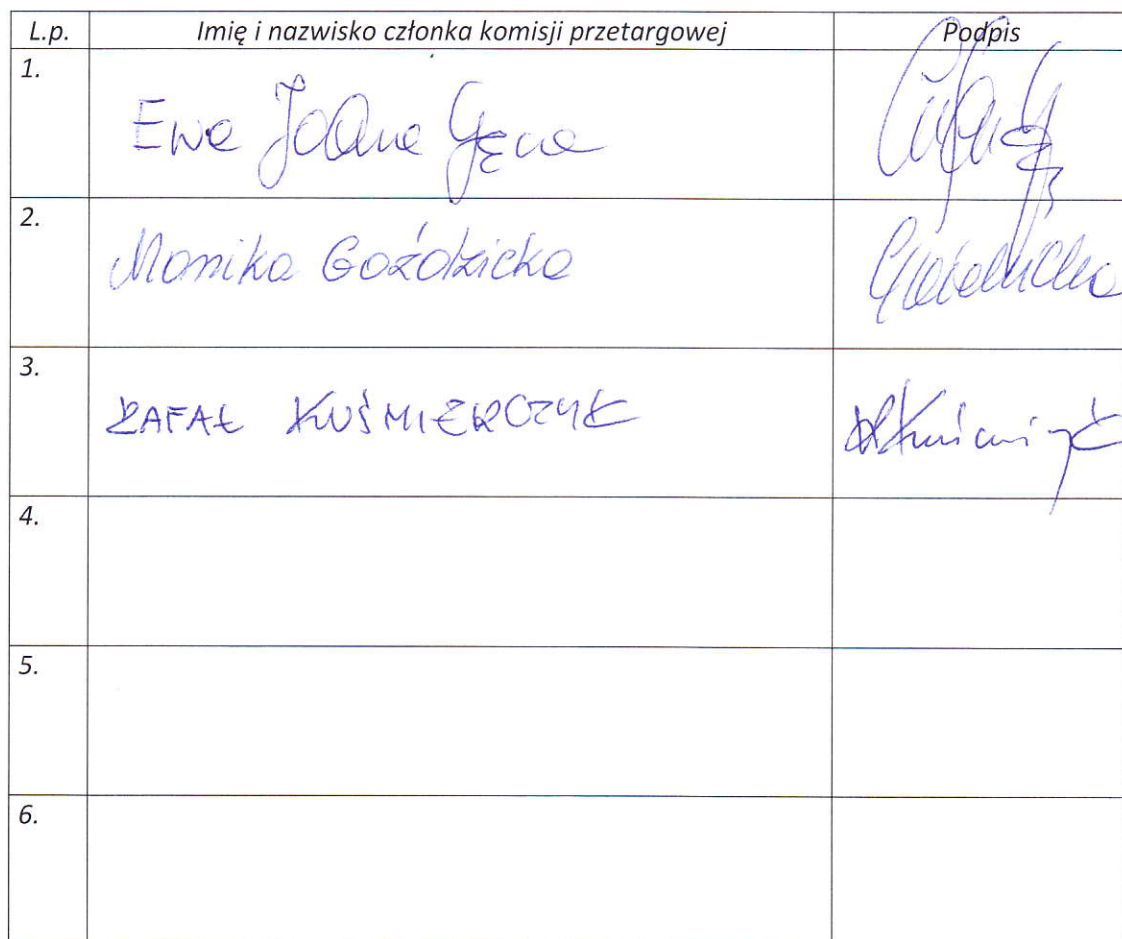 L.p. Imię i nazwisko członka komisji przetargowej Podpis
1. Ewa
2. Monika Goździcka
3. RAFAŁ KUŚMIERCZYK
4.
5.
6.